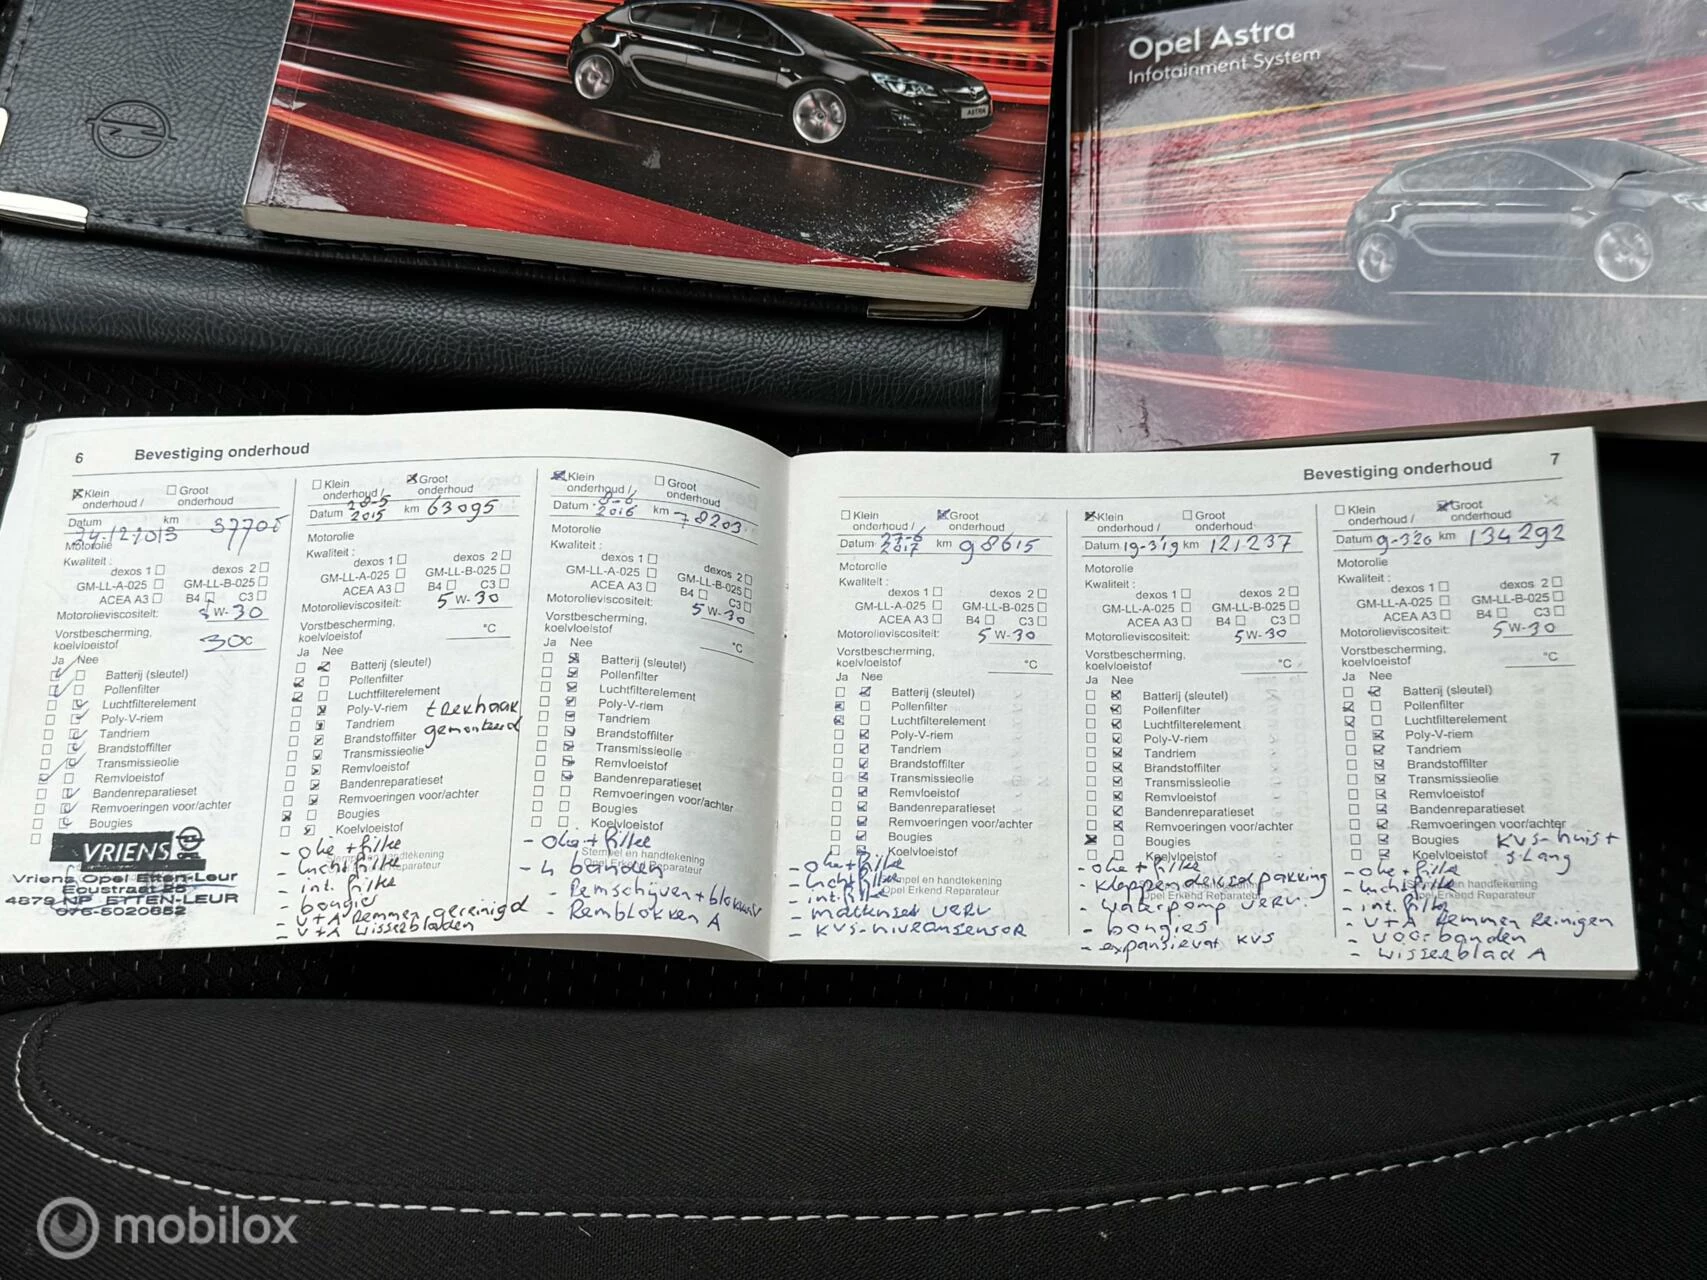 ASTRA
Opel Astra
Infotainment System
6 Bevestiging onderhoud
Klein onderhoud / Groot onderhoud
Datum 24-12-2013 km 37706
Motorolie
Kwaliteit :
dexos 1 dexos 2
GM-LL-A-025 GM-LL-B-025
ACEA A3 B4 C3
Motorolieviscositeit: 5 W-30
Vorstbescherming,
koelvloeistof 30C
Ja Nee
Batterij (sleutel)
Pollenfilter
Luchtfilterelement
Poly-V-riem
Tandriem
Brandstoffilter
Transmissieolie
Remvloeistof
Bandenreparatieset
Remvoeringen voor/achter
Bougies
VRIENS
Vriens Opel Etten-Leur
4879 NP ETTEN-LEUR
076-5020652
Klein onderhoud / Groot onderhoud
Datum 28-5 2015 km 63095
Motorolie
Kwaliteit :
dexos 1 dexos 2
GM-LL-A-025 GM-LL-B-025
ACEA A3 B4 C3
Motorolieviscositeit: 5 W-30
Vorstbescherming,
koelvloeistof °C
Ja Nee
Batterij (sleutel)
Pollenfilter
Luchtfilterelement
Poly-V-riem trekhaak
Tandriem gemonteerd
Brandstoffilter
Transmissieolie
Remvloeistof
Bandenreparatieset
Remvoeringen voor/achter
Bougies
Koelvloeistof
- olie + filter
- luchtfilter
- int. filter
- bougies
- V+A Remmen gereinigd
- V+A wisserbladen
Klein onderhoud / Groot onderhoud
Datum 8-6 2016 km 78203
Motorolie
Kwaliteit :
dexos 1 dexos 2
GM-LL-A-025 GM-LL-B-025
ACEA A3 B4 C3
Motorolieviscositeit: 5 W-30
Vorstbescherming,
koelvloeistof °C
Ja Nee
Batterij (sleutel)
Pollenfilter
Luchtfilterelement
Poly-V-riem
Tandriem
Brandstoffilter
Transmissieolie
Remvloeistof
Bandenreparatieset
Remvoeringen voor/achter
Bougies
Koelvloeistof
Stempel en handtekening
Opel Erkend Reparateur
- olie + filter
- 4 banden
- Remschijven + blokken V
- Remblokken A
Bevestiging onderhoud 7
Klein onderhoud / Groot onderhoud
Datum 27-6 2017 km 98615
Motorolie
Kwaliteit :
dexos 1 dexos 2
GM-LL-A-025 GM-LL-B-025
ACEA A3 B4 C3
Motorolieviscositeit: 5 W-30
Vorstbescherming,
koelvloeistof °C
Ja Nee
Batterij (sleutel)
Pollenfilter
Luchtfilterelement
Poly-V-riem
Tandriem
Brandstoffilter
Transmissieolie
Remvloeistof
Bandenreparatieset
Remvoeringen voor/achter
Bougies
Koelvloeistof
Stempel en handtekening
Opel Erkend Reparateur
- olie + filter
- luchtfilter
- int. filter
- mattenset verv
- KVS-niveausensor
Klein onderhoud / Groot onderhoud
Datum 19-3'19 km 121237
Motorolie
Kwaliteit :
dexos 1 dexos 2
GM-LL-A-025 GM-LL-B-025
ACEA A3 B4 C3
Motorolieviscositeit: 5 W-30
Vorstbescherming,
koelvloeistof °C
Ja Nee
Batterij (sleutel)
Pollenfilter
Luchtfilterelement
Poly-V-riem
Tandriem
Brandstoffilter
Transmissieolie
Remvloeistof
Bandenreparatieset
Remvoeringen voor/achter
Bougies
Koelvloeistof
Opel Erkend Reparateur
- olie + filter
- kleppendekselpakking
- waterpomp verv.
- bougies
- expansievat KVS
Klein onderhoud / Groot onderhoud
Datum 9-3'20 km 134292
Motorolie
Kwaliteit :
dexos 1 dexos 2
GM-LL-A-025 GM-LL-B-025
ACEA A3 B4 C3
Motorolieviscositeit: 5 W-30
Vorstbescherming,
koelvloeistof °C
Ja Nee
Batterij (sleutel)
Pollenfilter
Luchtfilterelement
Poly-V-riem
Tandriem
Brandstoffilter
Transmissieolie
Remvloeistof
Bandenreparatieset
Remvoeringen voor/achter
Bougies KVS-huis +
Koelvloeistof slang
Stempel en handtekening
Opel Erkend Reparateur
- olie + filter
- luchtfilter
- int. filter
- V+A Remmen Reinigen
- voorbanden
- wisserblad A
mobilox